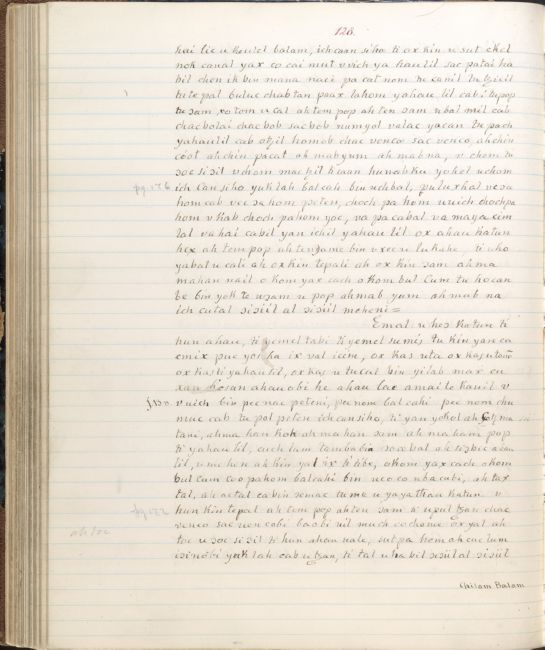 128.
kai lic u kouol balam, ich caan siho ti ox kin u sut ckel
nok canal yax co cai mut u vich ya haulil sac patai ha
bil chen ik bin mana naci pa cat nom
tu te pal buluc chabtan paax lahom yahau lil cab: tu pop
tu sam xotom u cal ah tem pop ah ten sam u bal mil cab
chac bolai chac bob sac bob numyol volac yacan tu pach
yahaulil cab otzil homob chac uenco sac uenco, ah chin
coot ah chin pacat ob mabyum ah mabna, u chom tu
soc sisil u chom machil kinan hunab ku yokol u chom
pg. 176 ich Can siho yuk lah balcah bin uchbal, pul uxkal
hom cab homo peten, choch pa hom u uich choch pa
hom u kab choch pahom yoc, va pa cabal va maya cim
lal va hai cabil yan ichil yahau lil ox ahau katun
hex ah tem pop ah ten same bin u xec u lukuhe, ti uho
yabal u cati ah ox kin tepali ah ox kin sam ah ma
mahan nail okom yax cach okom bul Cum tu hocan
be bin yok te usam u pop ahmab yum ah mab na
ich cutal sisiil al sisiil mehoni =
Emal u hop katun ti
hun ahau, ti yemel tabi ti yemel sumis tu kin yan ca
emix pue yol ka ix val icim, ox kas uta ox kas u
ox kas ti yahaulil, ox kas u tucul bin yilab max cu
xan bosan ahauobi he ahau lae amaite kauil u
f130. u uich bin pec nac peteni, pec nom bal cahi pec nom chu
muc cab tu pol peten ich can siho, ti yan yokol ah
tani, ahma han kok ah mahan sam ah mahan pop
ti yahaulil, cuch lum tambabin
lil, u ne hun ah kin yal ix ti tibe, okom yax cach okom
bul cum coo pahom balcahi bin uc oc o nbacubi, ah tax
tal, ah actal ca bin semac tume u yaya than katun u
pg 122 hun kin tepal ah tem pop ah ten sam ti u pul tzan chac
uenco sac uencobi baobi uil much cochome oxyal ah
ah toc toc u soc sisil ti hun ahau uale, sut pa hom ah cuc lum
isinobi yuk lah cab u tzan, ti tal u ha bil sisiil al sisiil
Chilam Balam